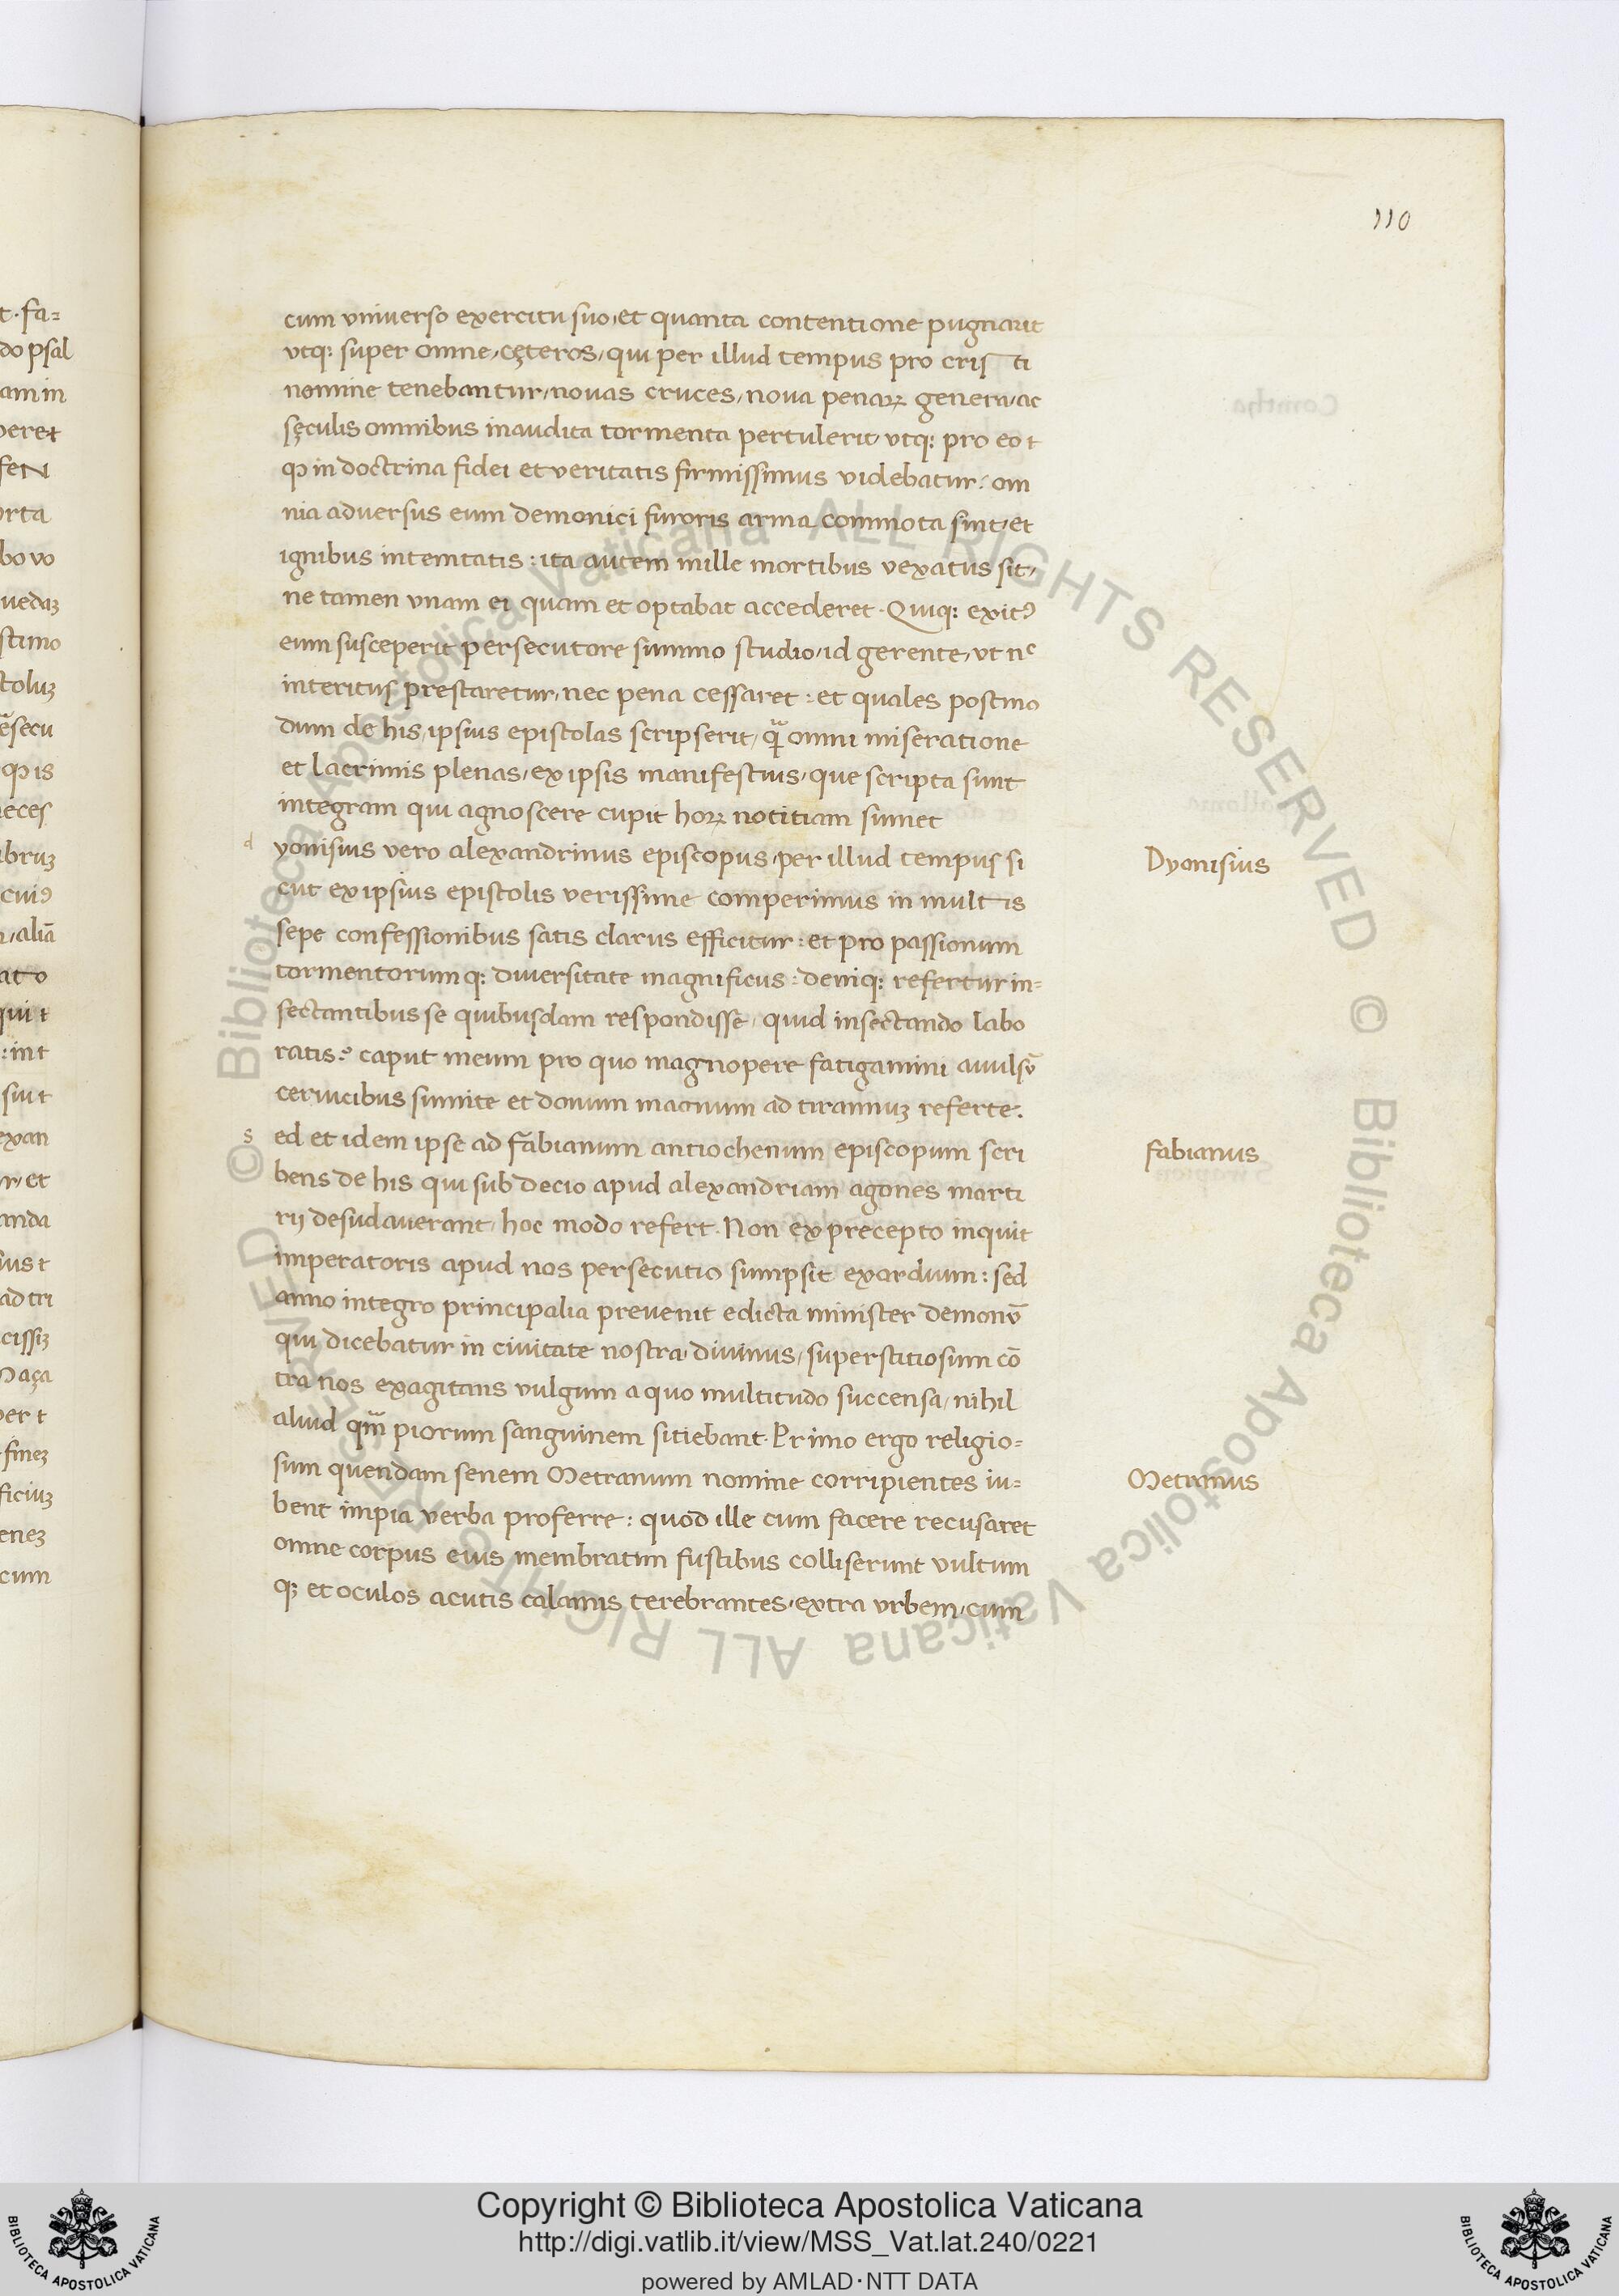 110
cum vniuerso exercitu suo, et quanta contentione pugnarit
vtq: super omne, cęteros, qui per illud tempus pro cristi
nomine tenebantur, nouas cruces, noua penaꝝ genera, ac
sęculis omnibus inaudita tormenta pertulerit, vtq: pro eo t
ꝙ in doctrina fidei et veritatis firmissimus videbatur: om
nia aduersus eum demonici furoris arma commota sint, et
ignibus intemtatis: ita autem mille mortibus vexatus sit,
ne tamen vnam ei quam et optabat accederet. Quiq: exitꝰ
eum susceperit persecutore summo studio, id gerente, vt nͨ
interitus prestaretur, nec pena cessaret: et quales postmo
dum de his, ipsius epistolas scripserit, qᷓ omni miseratione
et lacrimis plenas, ex ipsis manifestius, que scripta sunt
integram qui agnoscere cupit hoꝝ notitiam sumet
d yonisius vero alexandrinus episcopus, per illud tempus si
cut ex ipsius epistolis verissime comperimus in multis
sepe confessionibus satis clarus efficitur: et pro passionum
tormentorumq: diuersitate magnificus: deniq: refertur in=
sectantibus se quibusdam respondisse, quid insectando labo
ratis? caput meum pro quo magnopere fatigamini auulsū
ceruicibus sumite et donum macnum ad tirannuꝫ referte.
s ed et idem ipse ad fabianum antiochenum episcopum scri
bens de his qui sub decio apud alexandriam agones marti
rij desudauerant, hoc modo refert. Non ex precepto inquit
imperatoris apud nos persecutio sumpsit exordium: sed
anno integro principalia preuenit edicta minister demonū
qui dicebatur in ciuitate nostra, diuinus, superstitiosum cō
tra nos exagitans vulgum a quo multitudo succensa, nihil
aliud qm̃ piorum sanguinem sitiebant. Primo ergo religio=
sum quendam senem Metranum nomine corripientes iu=
bent impia verba proferre: quod ille cum facere recusaret
omne corpus eius membratim fustibus colliserunt vultum
qꝫ et oculos acutis calamis terebrantes, extra vrbem, cum
Dyonisius
fabianus
Metranus
t. fa=
do psal
am in
peret
feN
orta
bo vo
uedaꝫ
stimo
toluꝫ
ꝙ is
bruꝫ
cuiꝰ
, aliā
ato
qui t
: int
siut
exan
r, et
anda
ius t
ad tri
cissiꝫ
Maça
per t
fineꝫ
ficiuꝫ
eneꝫ
cum
© Biblioteca Apostolica Vaticana ALL RIGHTS RESERVED © Biblioteca Apostolica Vaticana ALL RIGHTS RESERVED
Copyright © Biblioteca Apostolica Vaticana
http://digi.vatlib.it/view/MSS_Vat.lat.240/0221
powered by AMLAD·NTT DATA
BIBLIOTECA APOSTOLICA VATICANA
BIBLIOTECA APOSTOLICA VATICANA